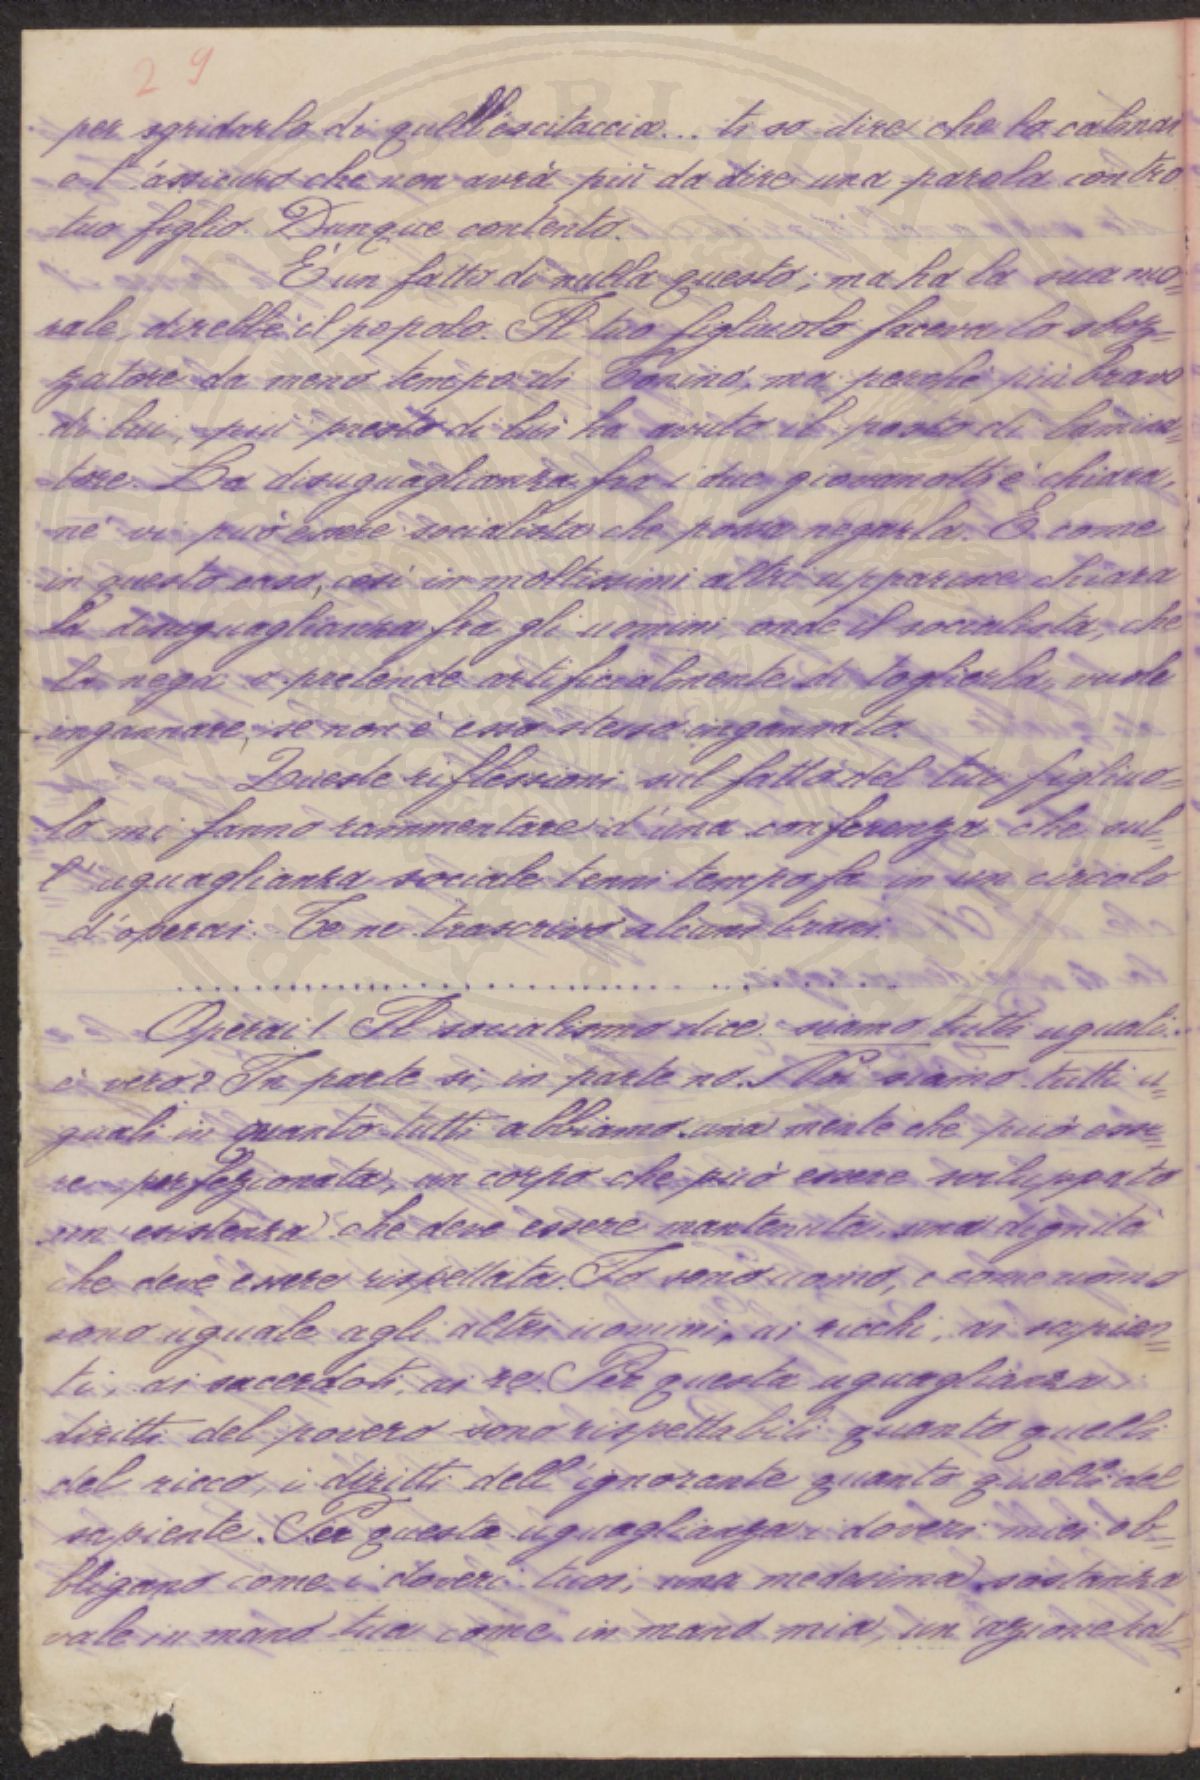 29
per sgridarlo di quell'escitaccia... ti so dire che lo calmai
e l'assicuro che non avrà più da dire una parola contro
tuo figlio. Dunque contento.
È un fatto di nulla questo; ma ha la sua mo=
rale, direbbe il popolo. Il tuo figliuolo faceva lo sboz=
zatore da meno tempo di Tonino, ma perché più bravo
di lui, più presto di lui ha avuto il posto di lamina=
tore. La disuguaglianza fra i due giovanotti è chiara,
né vi può essere socialista che possa negarla. E come
in questo caso, così in moltissimi altri apparisce chiara
la disuguaglianza fra gli uomini, onde il socialista, che
la nega o pretende artificialmente di toglierla, vuole
ingannare, se non è esso stesso ingannato.
Queste riflessioni sul fatto del tuo figliuo=
lo mi fanno rammentare d'una conferenza che sul=
l'uguaglianza sociale tenni tempo fa in un circolo
d'operai. Te ne trascrivo alcuni brani.
........................................
Operai! Il socialismo dice: siamo tutti uguali.
è vero? In parte si, in parte no. Noi siamo tutti u=
guali in quanto tutti abbiamo una mente che può esse=
re perfezionata, un corpo che può essere sviluppato
un'esistenza che deve essere mantenuta, una dignità
che deve essere rispettata. Io sono uomo, e come uomo
sono uguale agli altri uomini, ai ricchi, ai sapien=
ti, ai sacerdoti, ai re. Per questa uguaglianza i
diritti del povero sono rispettabili quanto quelli
del ricco, i diritti dell'ignorante quanto quelli del
sapiente. Per questa uguaglianza i doveri miei ob=
bligano come i doveri tuoi, una medesima sostanza
vale in mano tua come in mano mia, un'azione tal=